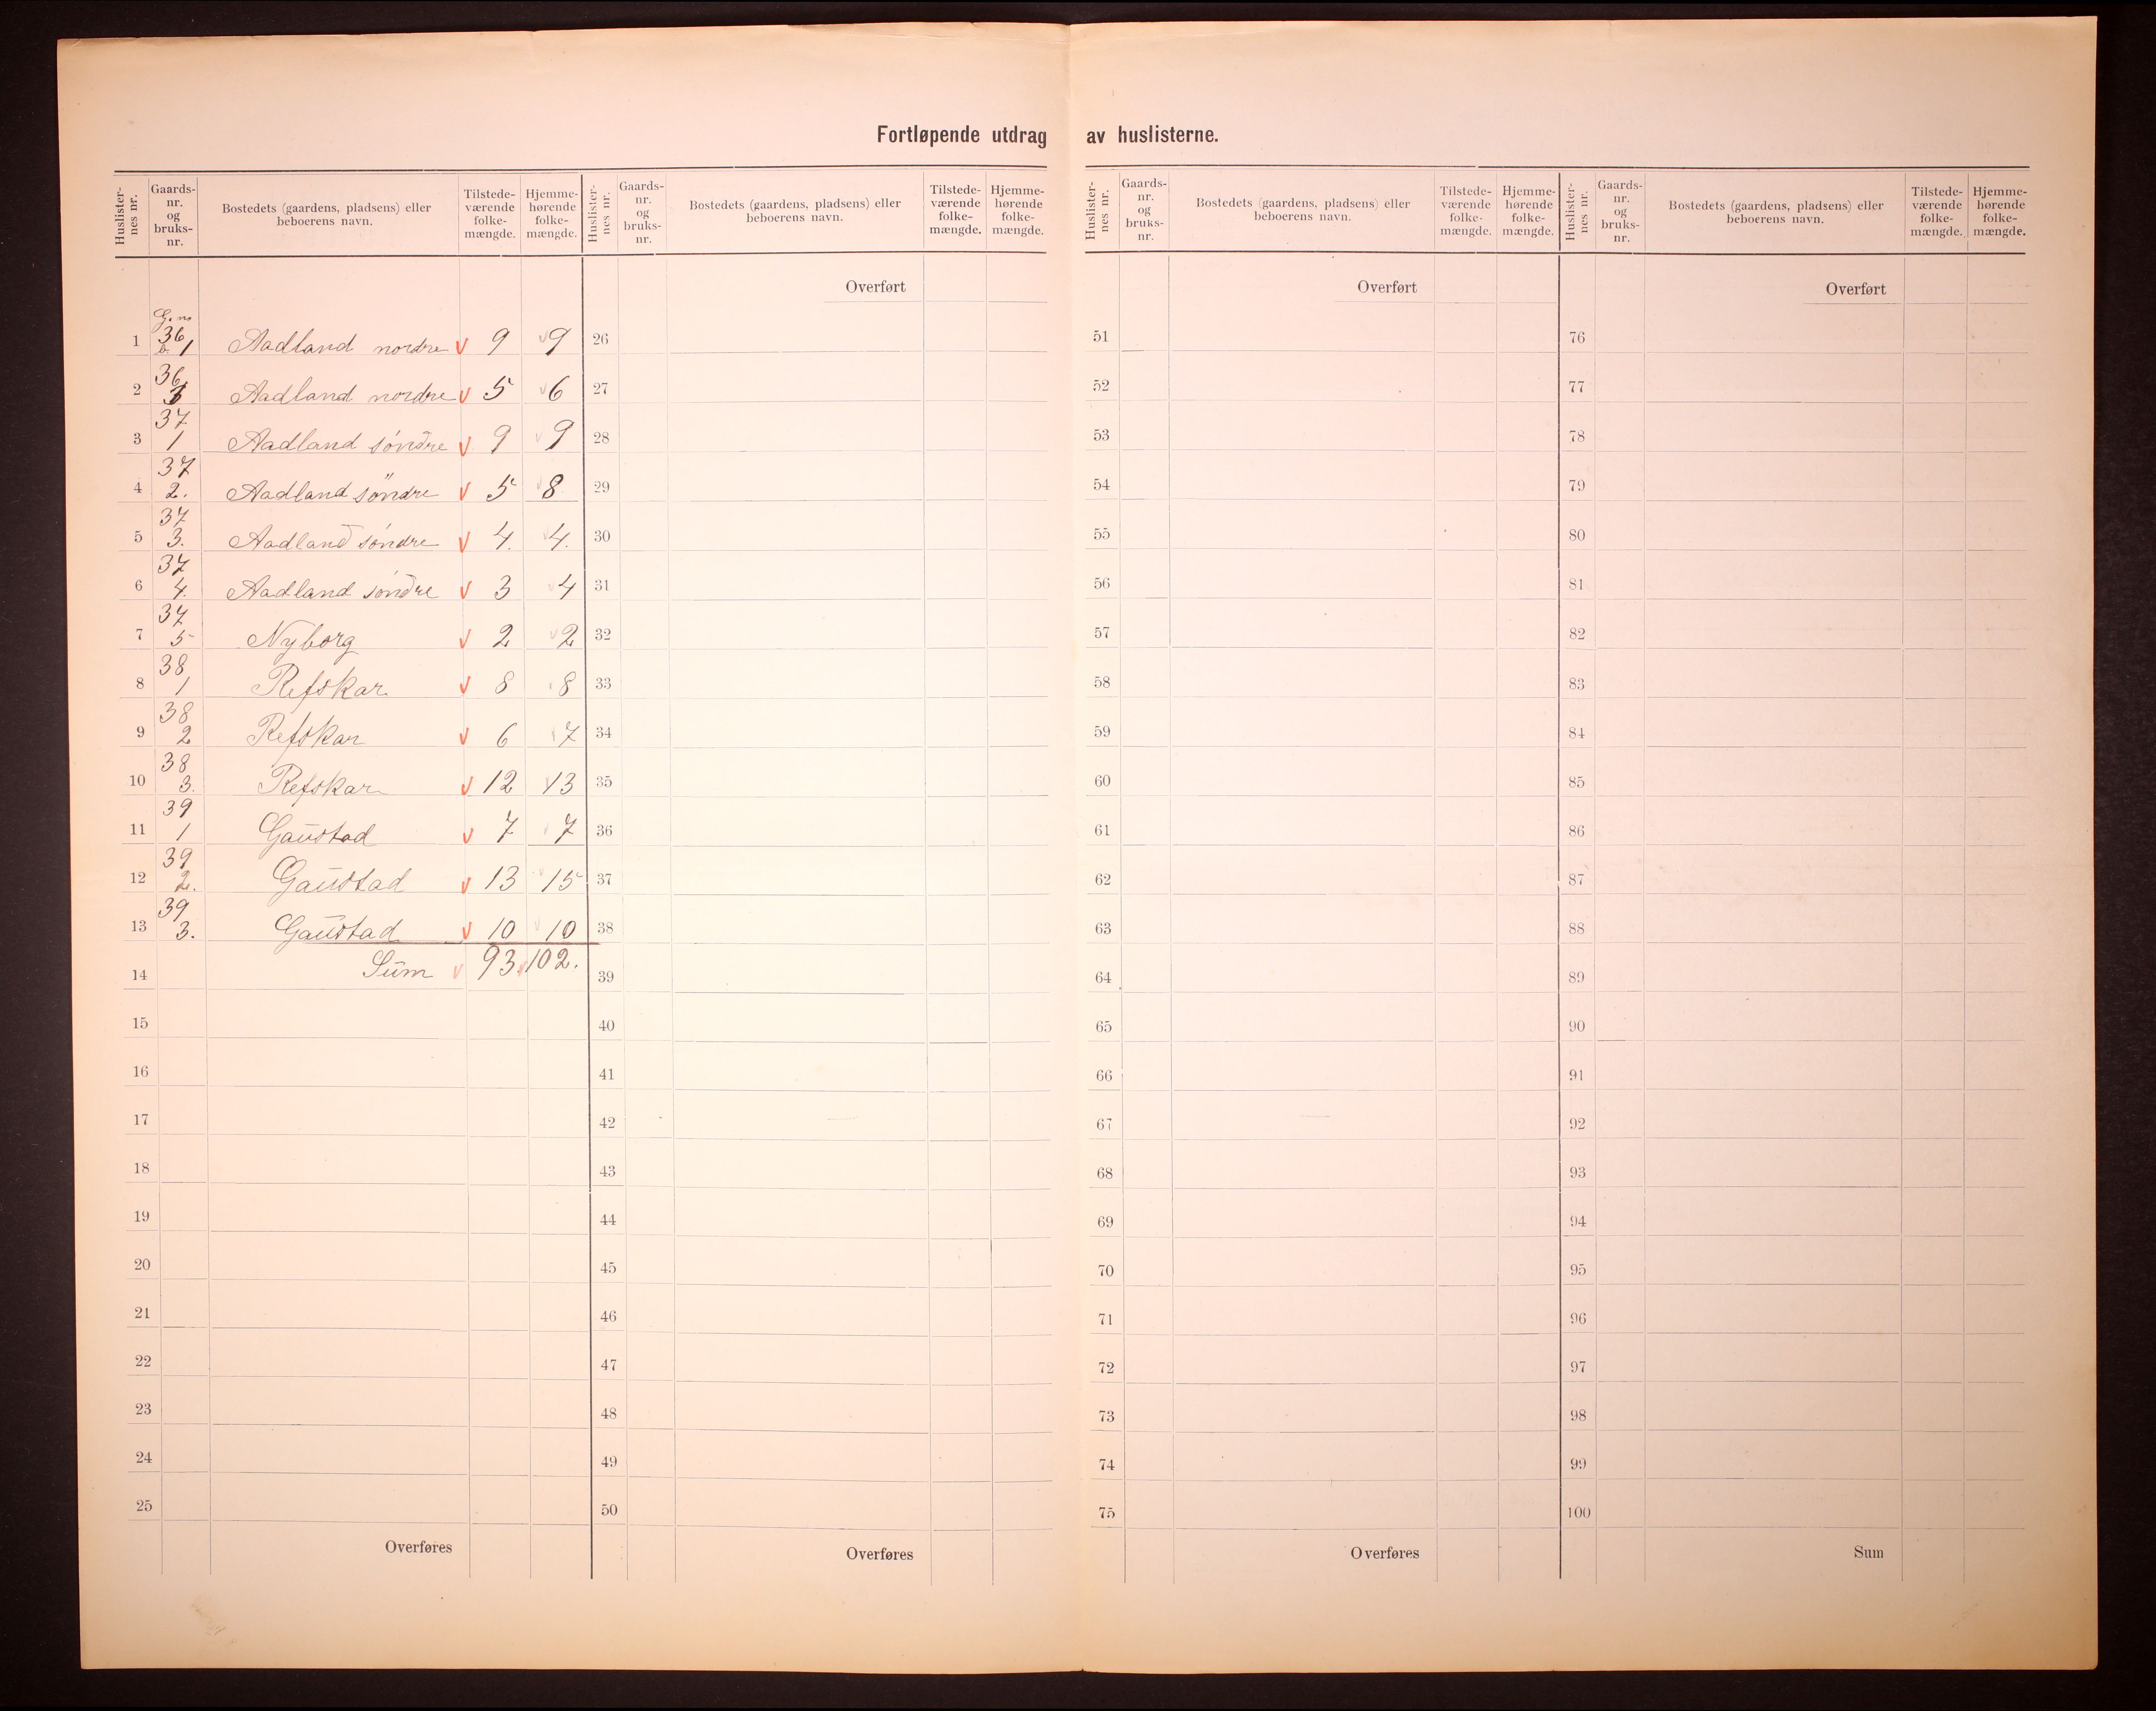 Fortløpende utdrag av huslisterne.
Huslister-nes nr. Gaards-nr. og bruks-nr. Bostedets (gaardens, pladsens) eller beboerens navn. Tilstede-værende folke-mængde. Hjemme-hørende folke-mængde.
Huslister-nes nr. Gaards-nr. og bruks-nr. Bostedets (gaardens, pladsens) eller beboerens navn. Tilstede-værende folke-mængde. Hjemme-hørende folke-mængde.
Huslister-nes nr. Gaards-nr. og bruks-nr. Bostedets (gaardens, pladsens) eller beboerens navn. Tilstede-værende folke-mængde. Hjemme-hørende folke-mængde.
Huslister-nes nr. Gaards-nr. og bruks-nr. Bostedets (gaardens, pladsens) eller beboerens navn. Tilstede-værende folke-mængde. Hjemme-hørende folke-mængde.
1 36 1 Aadland nordre v 9 v 9
2 36 3 Aadland nordre v 5 v 6
3 37 1 Aadland søndre v 9 v 9
4 37 2. Aadland söndre v 5 v 8
5 37 3. Aadland søndre v 4. v 4.
6 37 4. Aadland søndre v 3 v 4
7 37 5 Nyborg v 2 v 2
8 38 1 Refskar v 8 8
9 38 2 Refskar v 6 7
10 38 3. Refskar v 12 13
11 39 1 Gaustad v 7 7
12 39 2. Gaustad v 13 v 15
13 39 3. Gaustad v 10 v 10
14 Sum v 93 v 102.
15
16
17
18
19
20
21
22
23
24
25
Overføres
Overført
26
27
28
29
30
31
32
33
34
35
36
37
38
39
40
41
42
43
44
45
46
47
48
49
50
Overføres
Overført
51
52
53
54
55
56
57
58
59
60
61
62
63
64
65
66
67
68
69
70
71
72
73
74
75
Overføres
Overført
76
77
78
79
80
81
82
83
84
85
86
87
88
89
90
91
92
93
94
95
96
97
98
99
100
Sum